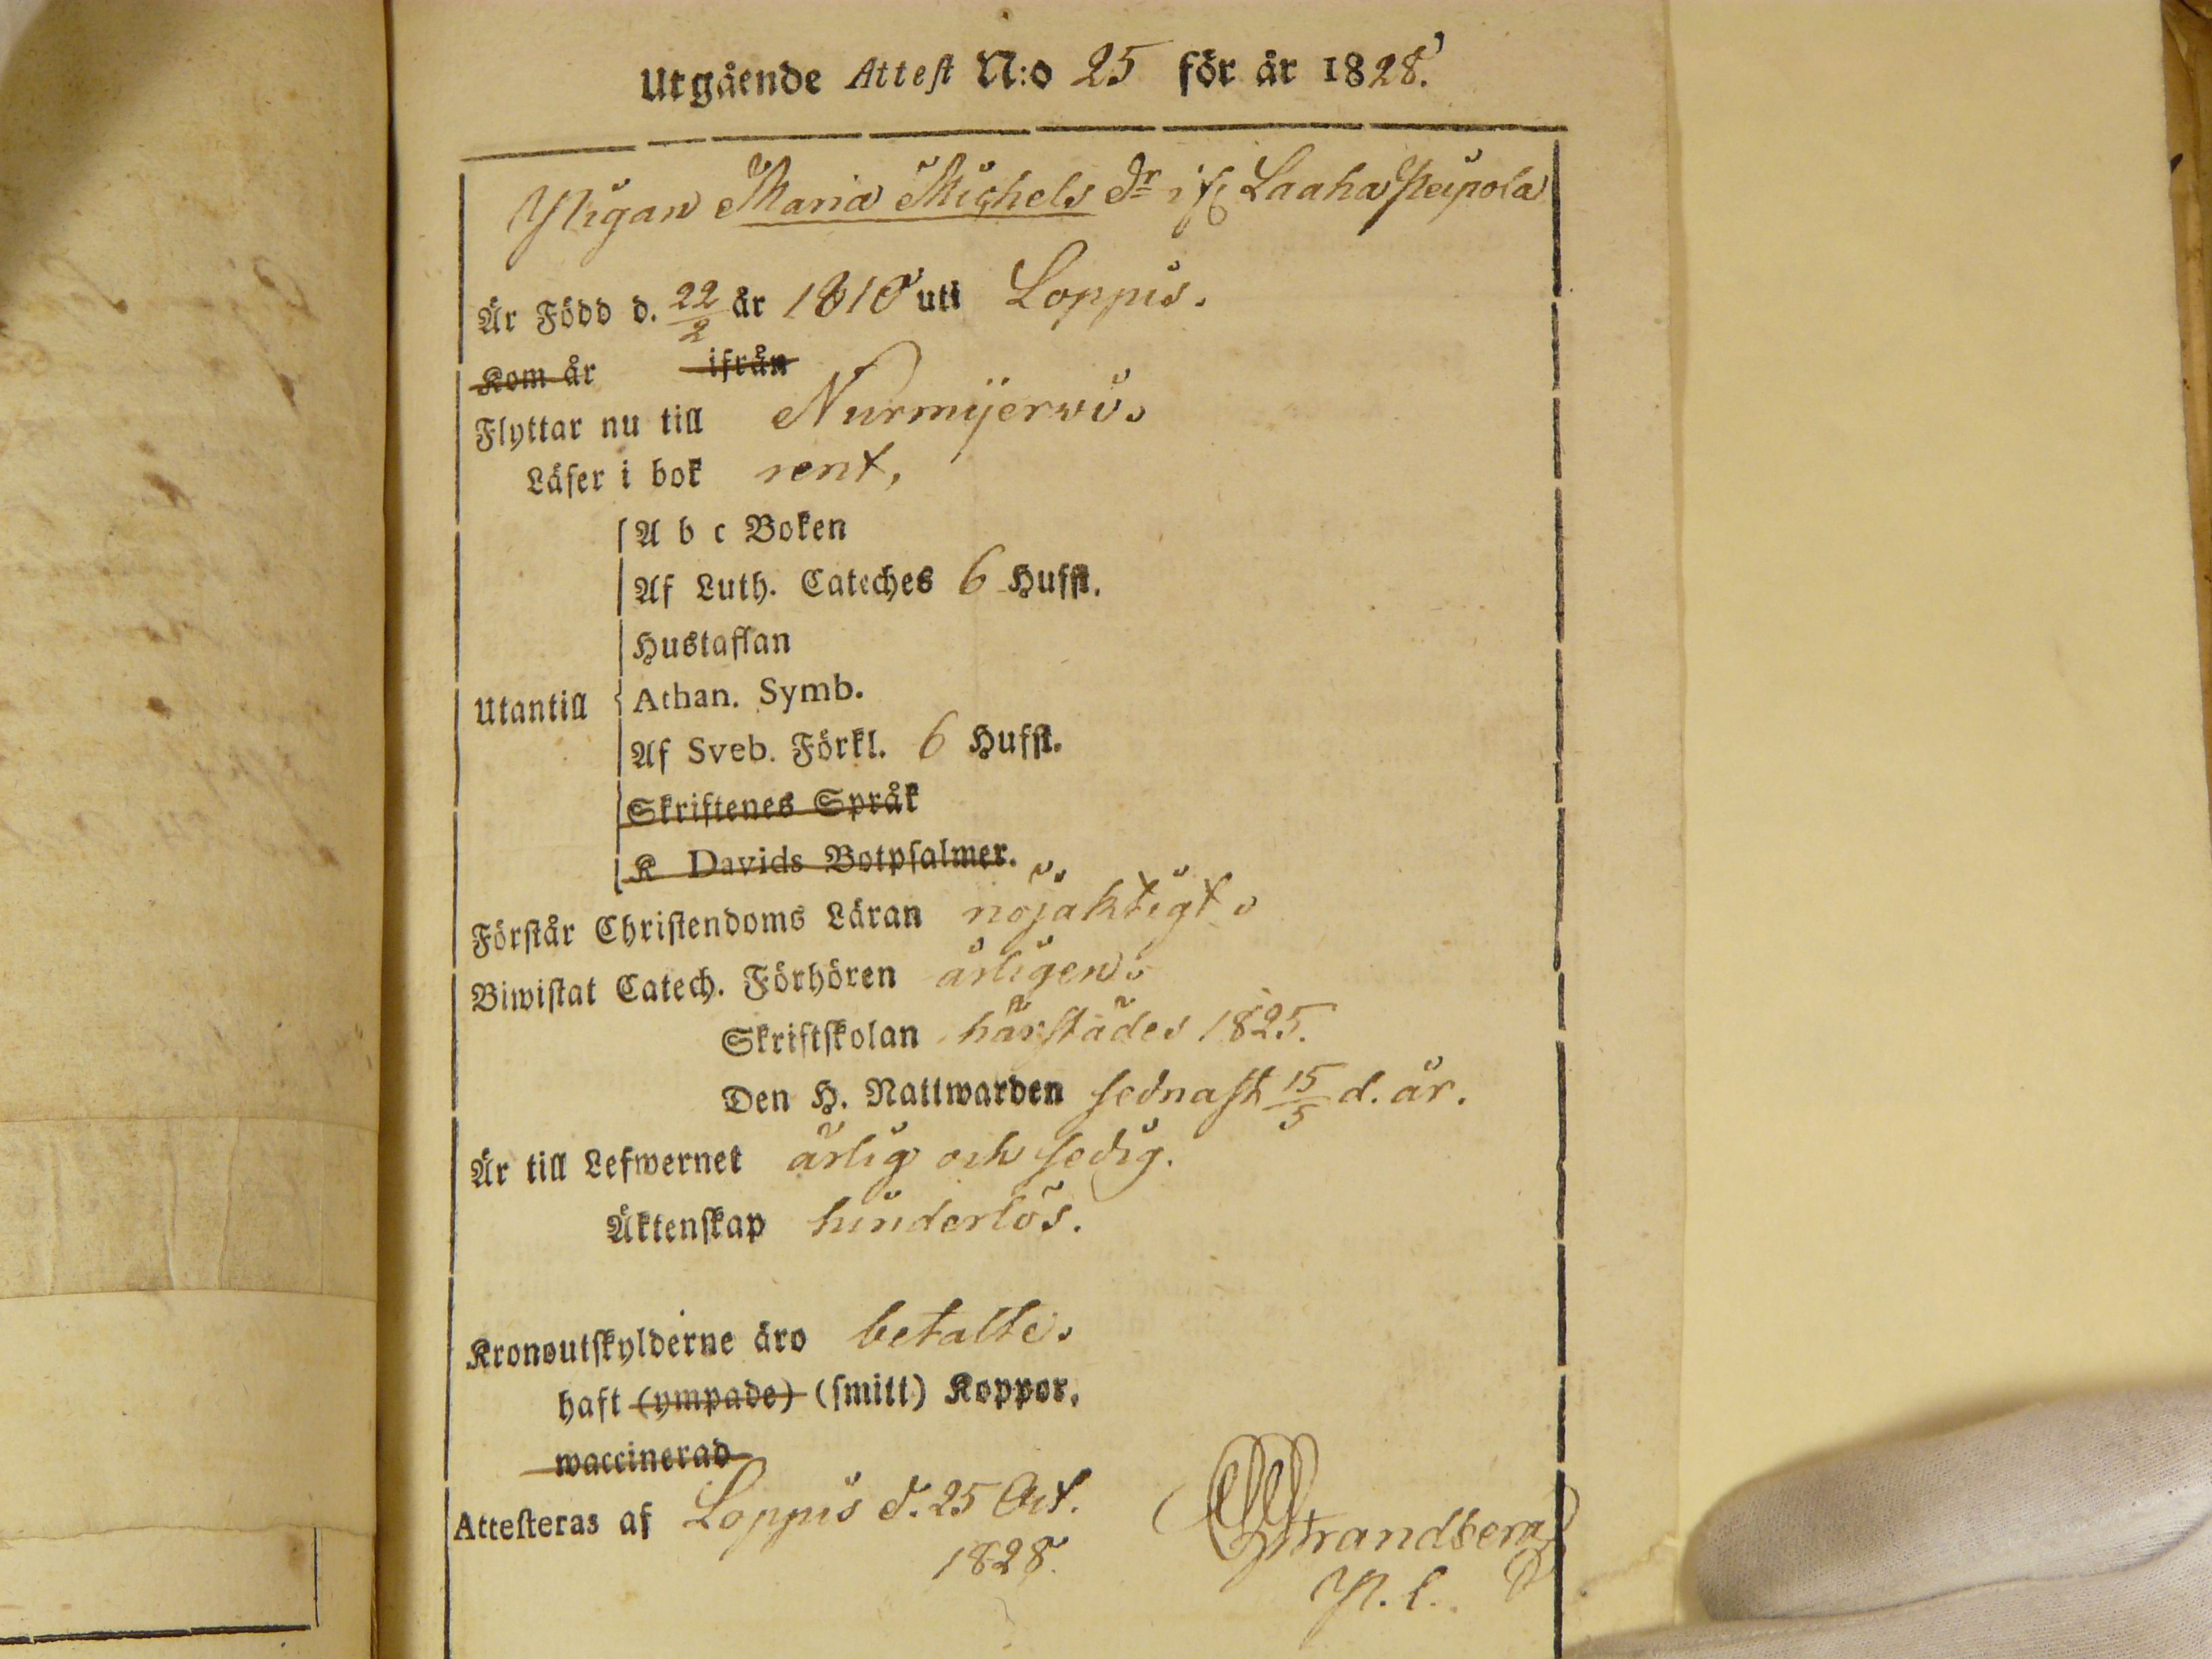 Utgående Attest N:o 25 för år 1828.
Pigan Maria Michels Dr if: Laaha Peipola
Är Född d. 22/2 år 1810 uti Loppis.
Kom år ifrån
Flyttar nu till Nurmijerwi.
Läser i bok rent,
A b c Boken
Af Luth. Cateches 6 Hufst.
Hustaflan
Utantill Athan. Symb.
Af Sveb. Förkl. 6 Hufst.
Skriftenes Språk
K Davids Botpsalmer.
Förstår Christendoms Läran nöjaktigt.
Biwistat Catech. Förhören årligen.
Skriftskolan härstädes 1825.
Den H. Nattwarden sednast 15/5 d. år.
Är till Lefwernet ärlig och sedig.
Äktenskap hinderlös.
Kronoutskylderne äro betalte.
haft (ympade) (smitt) Koppor.
waccinerad
Attesteras af Loppis d. 25 Oct.
1828.
Strandberg